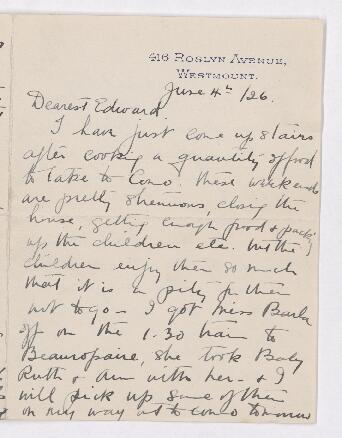 416 Roslyn Avenue,
Westmount.
June 4th /26.
Dearest Edward.
I have just come up stairs
after cooking a quantity of food
to take to Como. These week ends
are pretty strenuous, closing the
house, getting enough food & packing
up the children etc. but the
children enjoy them so much
that it is a pity for them
not to go - I got Miss
off on the 1.30 train to
Beaurepaire, she took Baby
Ruth & Ann with her - & I
will pick up some of them
on my way out to Como tomorrow